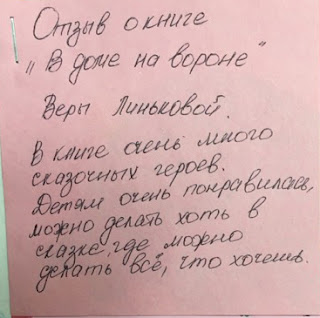 Отзыв о книге
„В доме на вороне"
Веры Линьковой.
В книге очень много
сказочных героев.
Детям очень понравилась,
можно делать хоть в
сказке, где можно
делать всё, что хочешь.